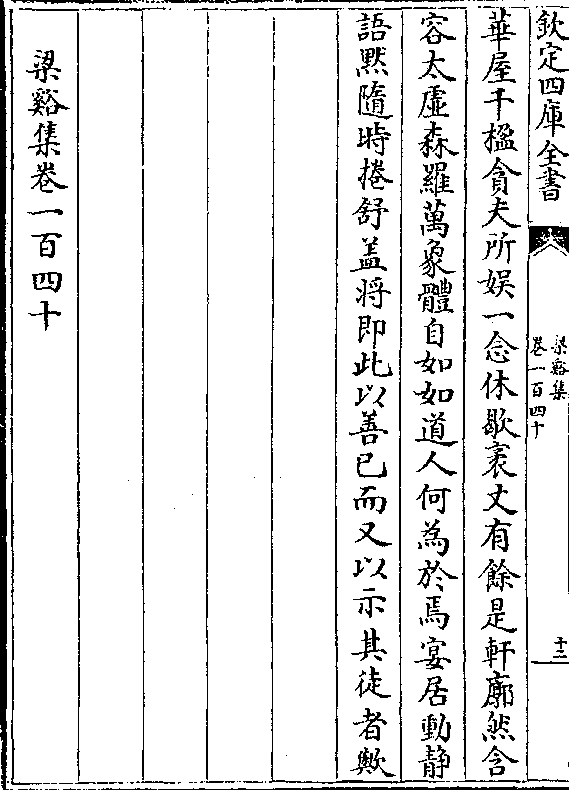 欽定四庫全書
梁谿集
卷一百四十
十二
華屋千楹貪夫所娱一念休歇袤丈有餘是軒廓然含
容太虚森羅萬象體自如如道人何為於焉宴居動静
語黙隨時捲舒盖將即此以善已而又以示其徒者歟
梁谿集卷一百四十